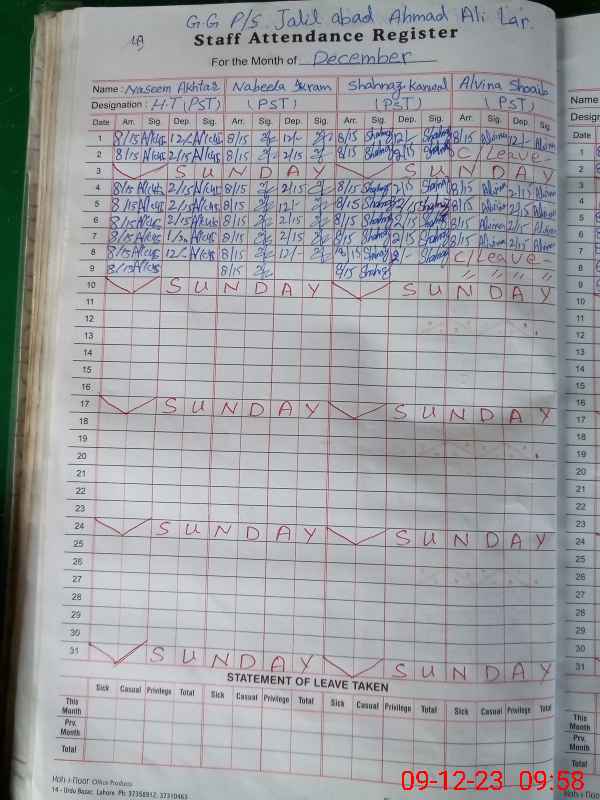 19
G.G P/S. Jalil abad Ahmad Ali Lar.
Staff Attendance Register
For the Month of December
Name : Naseem Akhtar Nabeela Ikram Shahnaz Kanwal Alvina Shoaib
Designation : H.T (PST) (PST) (PST) (PST)
Date Arr. Sig. Dep. Sig. Arr. Sig. Dep. Sig. Arr. Sig. Dep. Sig. Arr. Sig. Dep. Sig.
1 8/15 12/- 8/15 12/- 8/15 Shahnaz 12/- Shahnaz 8/15 Alvina 12/- Alvina
2 8/15 2/15 8/15 2/15 8/15 Shahnaz 2/15 Shahnaz C/Leave
3 SUNDAY SUNDAY
4 8/15 2/15 8/15 2/15 8/15 Shahnaz 2/15 Shahnaz 8/15 Alvina 2/15 Alvina
5 8/15 2/15 8/15 12/- 8/15 Shahnaz 2/15 Shahnaz 8/15 Alvina 2/15 Alvina
6 8/15 2/15 8/15 2/15 8/15 Shahnaz 2/15 Shahnaz 8/15 Alvina 2/15 Alvina
7 8/15 8/15 2/15 8/15 Shahnaz 2/15 Shahnaz 8/15 Alvina 2/15 Alvina
8 8/15 12/- 8/15 12/- Shahnaz Shahnaz C/Leave -
9 8/15 8/15 8/15 Shahnaz " " " "
10 SUNDAY SUNDAY
11
12
13
14
15
16
17 SUNDAY SUNDAY
18
19
20
21
22
23
24 SUNDAY SUNDAY
25
26
27
28
29
30
31 SUNDAY SUNDAY
STATEMENT OF LEAVE TAKEN
Sick Casual Privilege Total Sick Casual Privilege Total Sick Casual Privilege Total Sick Casual Privilege Total
This Month
Prv. Month
Total
Office Products
14 - Urdu Bazar, Lahore. Ph: 37358912, 37310463
Name
Date
1
2
3
4
5
6
7
8
9
10
11
12
13
14
15
16
17
18
19
20
21
22
23
24
25
26
27
28
29
30
31
This Month
Prv. Month
Total
09-12-23 09:58